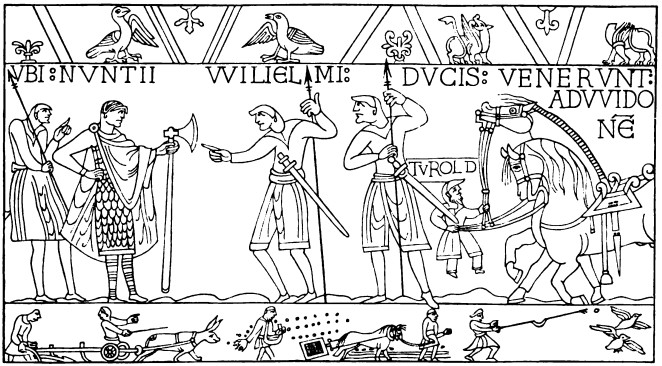 VBI : NVNTII VVILIELMI : DVCIS : VENERVNT :
ADVVIDO
NE̅
TVROLD